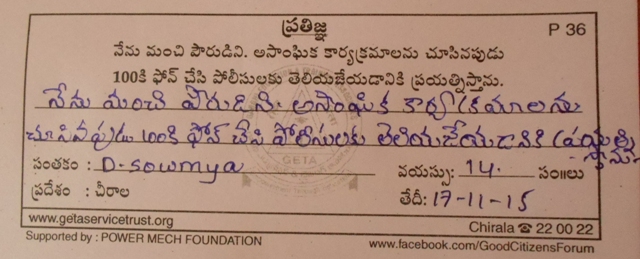 ప్రతిజ్ఞ P 36
నేను మంచి పౌరుడిని. అసాంఘిక కార్యక్రమాలను చూసినపుడు
100కి ఫోన్ చేసి పోలీసులకు తెలియజేయడానికి ప్రయత్నిస్తాను.
నేను మంచి పౌరుడిని. అసాంఘిక కార్యక్రమాలను
చూసినపుడు 100కి ఫోన్ చేసి పోలీసులకు తెలియజేయడానికి ప్రయత్ని
స్తాను
సంతకం : D-sowmya వయస్సు: 14. సం॥లు
GETA
ప్రదేశం : చీరాల తేదీ: 17-11-15
www.getaservicetrust.org Chirala ☎ 22 00 22
Supported by : POWER MECH FOUNDATION www.facebook.com/GoodCitizensForum